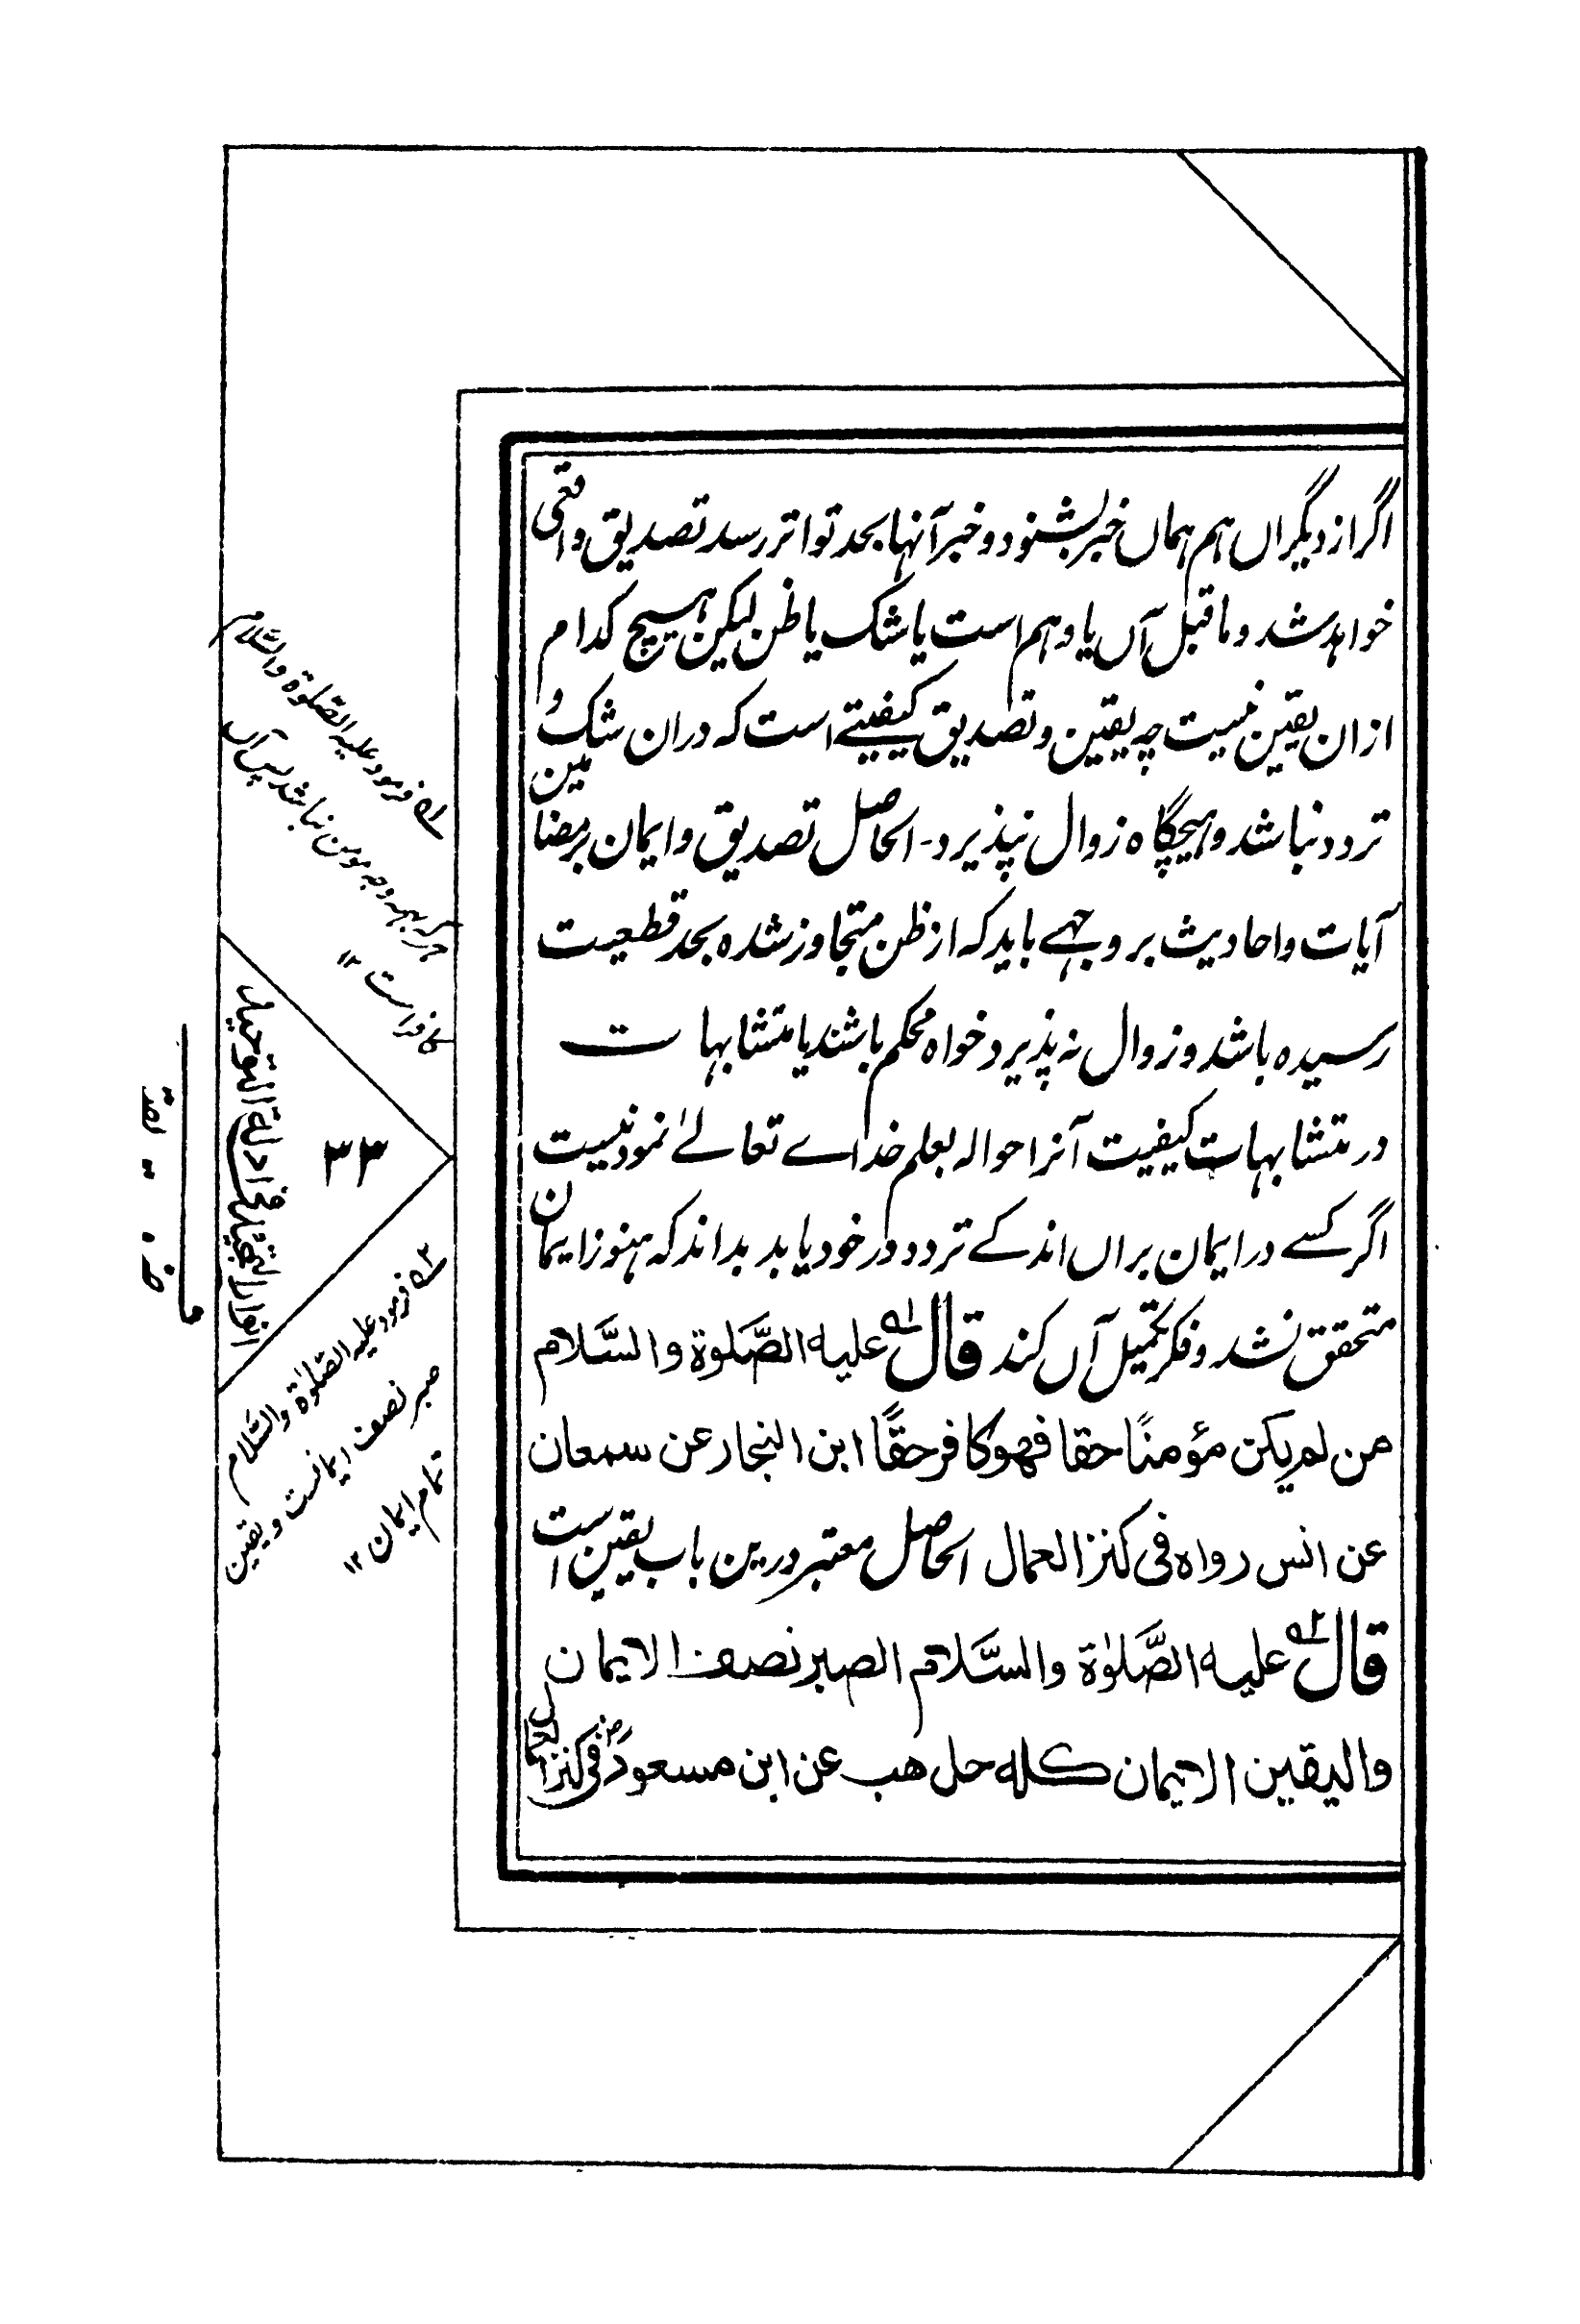 اگر از دیگراں ہم ہماں خبر بشنود و خبر آنہا بحد تواتر رسد تصدیق واقعی
خواہد شد و ماقبل آں یا وہم است یا شک یا ظن لیکن ہیچ کدام
ازان یقین نیست چہ یقین و تصدیق کیفیتے است کہ دران شک و
تردد نباشد و ہیچگاہ زوال نپذیرد۔ الحاصل تصدیق و ایمان بر مضامین
آیات و احادیث بر وجہے باید کہ از ظن متجاوز شدہ بحد قطعیت
رسیدہ باشد و زوال نہ پذیرد خواہ محکم باشند یا متشابہات
در متشابہات کیفیت آنرا حوالہ بعلم خداے تعالےٰ نمودنیست
اگر کسے در ایمان براں اندکے تردد در خود یابد بداند کہ ہنوز ایمان
متحقق نشد و فکر تکمیل آں کند قال لہ علیہ الصَّلوۃ والسَّلام
من لم یکن مؤمنًا حقا فهو کافر حقًّا ابن النجار عن سمعان
عن انس رواه فی کنز العمال الحاصل معتبر درین باب یقین است
قال ٢ہ علیہ الصَّلوٰۃ والسَّلام الصبر نصف الایمان
والیقین الایمان کله حل هب عن ابن مسعود رض فی کنز العمال
لہ فرمود علیہ الصّلوۃ والسّلام
ہر کہ بہمہ وجہ مومن نباشد پس آں
کافر است ۱۲
انوار التمجید فی ادلۃ التوحید
۳۳
٢ہ فرمود علیہ الصّلوٰۃ والسّلام
صبر نصف ایمانست و یقین
تمام ایمان ۱۲